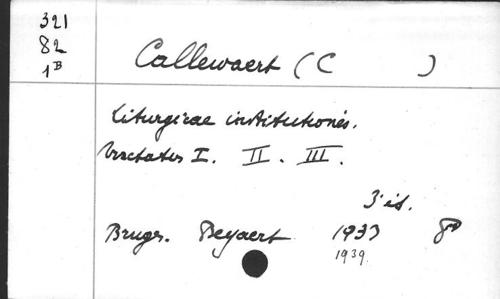 321
82
1B
Callewaert (C )
Liturgicae institutiones.
Tractatus I. II. III.
3 ed.
Bruges. Beyaert 1933 8°
1939.